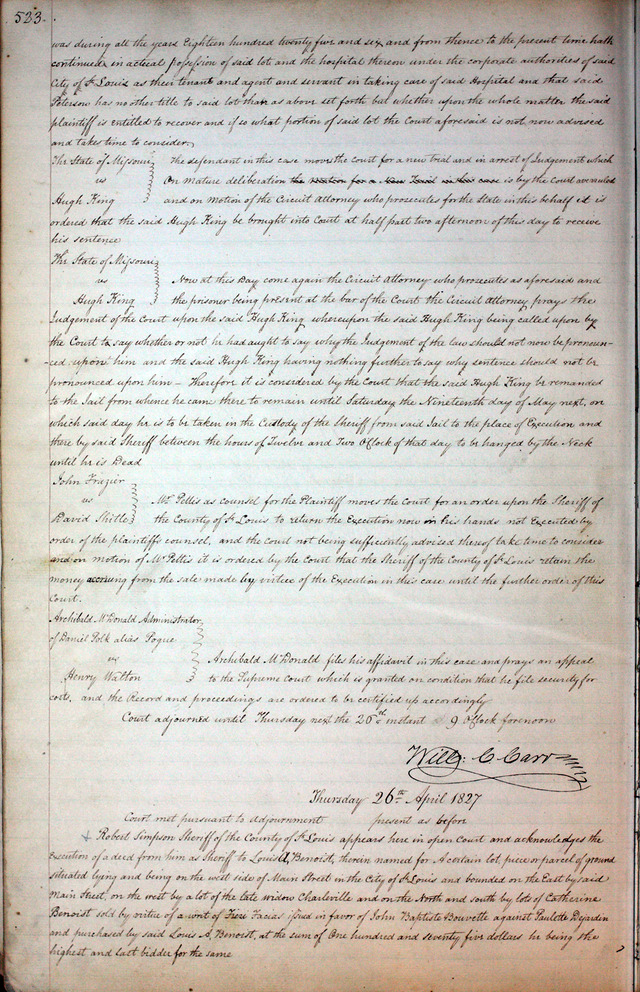 523.
was during all the years Eighteen hundred twenty five and six, and from thence to the present time hath
continued in actual possession of said lot and the hospital thereon under the corporate authorities of said
City of St Louis as their tenant and agent and servant in taking care of said Hospital and that said
Peterson has no other title to said lot than as above set forth but whether upon the whole matter the said
plaintiff is entitled to recover and if so what portion of said lot the Court aforesaid is not now advised
and takes time to consider
The State of Missouri
vs
Hugh King
The defendant in this case moves the court for a new trial and in arrest of Judgement which
On mature deliberation the motion for a New Trail in this case is by the Court overruled
and on motion of the Circuit Attorney who prosecutes for the State in this behalf it is
ordered that the said Hugh King be brought into Court at half past two afternoon of this day to receive
his sentence
The State of Missouri
vs
Hugh King
Now at this Day come again the Circuit Attorney who prosecutes as aforesaid and
the prisoner being present at the bar of the Court the Circuit Attorney prays the
Judgement of the Court upon the said Hugh King whereupon the said Hugh King being called upon by
the Court to say whether or not he had aught to say why the Judgement of the law should not now be pronoun-
-ced upon him and the said Hugh King having nothing further to say why sentence should not be
pronounced upon him – Therefore it is considered by the Court that the said Hugh King be remanded
to the Jail from whence he came there to remain until Saturday the Nineteenth day of May next, on
which said day he is to be taken in the Custody of the Sheriff from said Jail to the place of Execution and
there by said Sheriff between the hours of Twelve and Two O'Clock of that day to be hanged by the Neck
until he is Dead
John Frazier
vs
David Shitle
Mr Pettis as counsel for the Plaintiff moves the Court for an order upon the Sheriff of
the County of St Louis to return the Execution now in his hands not Executed by
order of the plaintiffs counsel, and the Court not being sufficiently advised thereof take time to consider
and on motion of Mr Pettis it is ordered by the Court that the Sheriff of the County of St Louis retain the
money accruing from the sale made by virtue of the Execution in this case until the further order of this
Court.
Archibald McDonald Administrator
of Daniel Polk alias Pogue
vs
Henry Walton
Archibald McDonald files his affidavit in this case and prays an appeal
to the Supreme Court which is granted on condition that he file security for
costs, and the Record and proceedings are ordered to be certified up accordingly
Court adjourned until Thursday next the 26th instant 9 O'Clock forenoon
Will: C. Carr
Thursday 26th April 1827
Court met pursuant to adjournment present as before
Robert Simpson Sheriff of the County of St Louis appears here in open Court and acknowledges the
execution of a deed from him as Sheriff to Louis A. Benoist, therein named for A certain lot piece or parcel of ground
situated lying and being on the west side of Main Street in the City of St Louis and bounded on the East by said
Main Street, on the west by a lot of the late widow Charleville and on the North and south by lots of Catherine
Benoist sold by virtue of a writ of Fiere Facias issued in favor of John Baptiste Bouvette against Paulette Dejardin
and purchased by said Louis A. Benoist, at the sum of One hundred and seventy five dollars he being the
highest and last bidder for the same